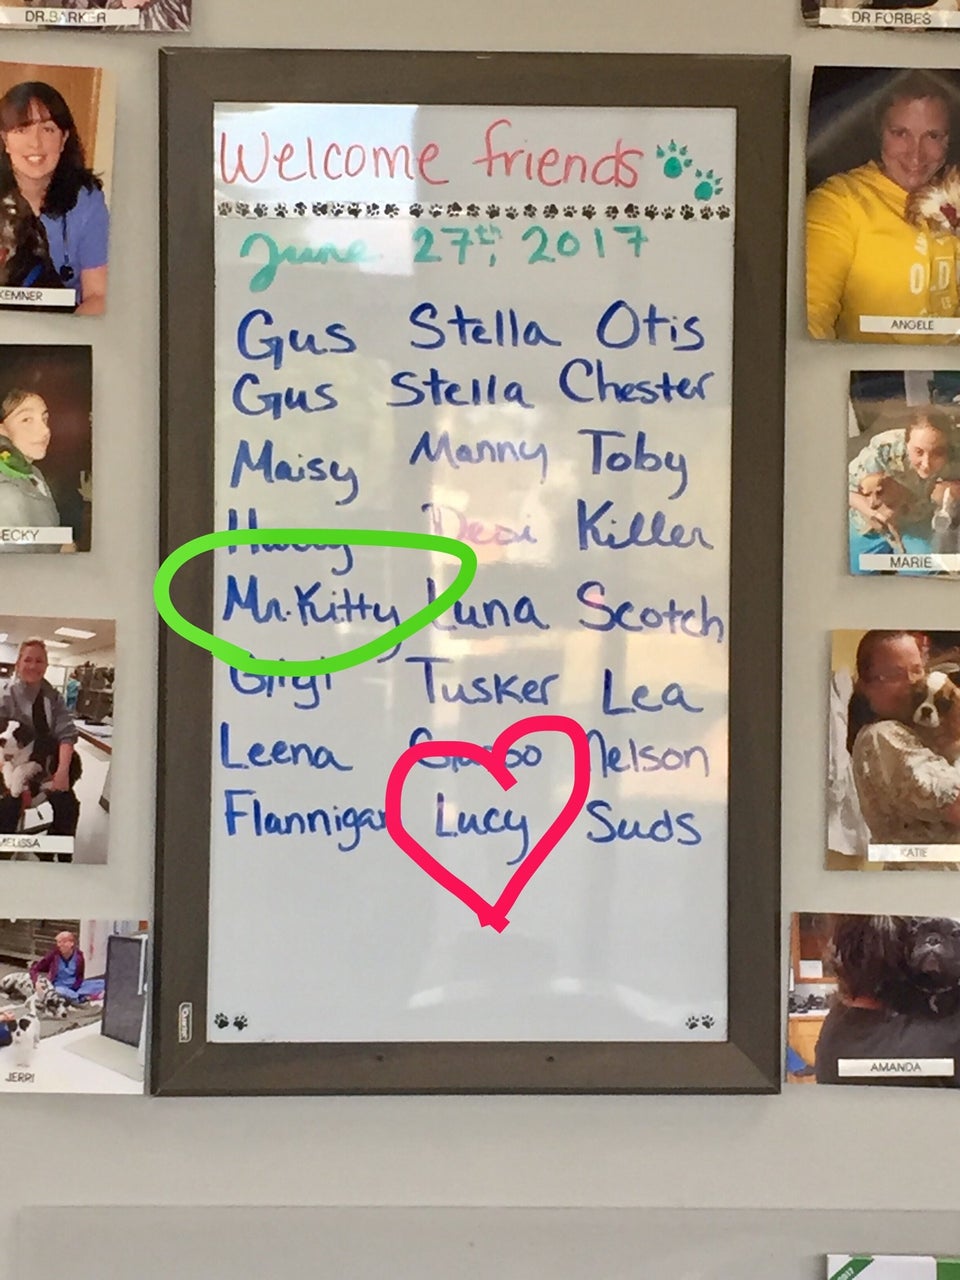 DR.BARKER
DR FORBES
Welcome friends
June 27th, 2017
Gus Stella Otis
Gus Stella Chester
Maisy Manny Toby
Desi Killer
Mr.Kitty Luna Scotch
Gigi Tusker Lea
Leena Nelson
Flannigan Lucy Suds
KEMNER
BECKY
MELISSA
JERRI
ANGELE
MARIE
KATIE
AMANDA
OLD
Quartet